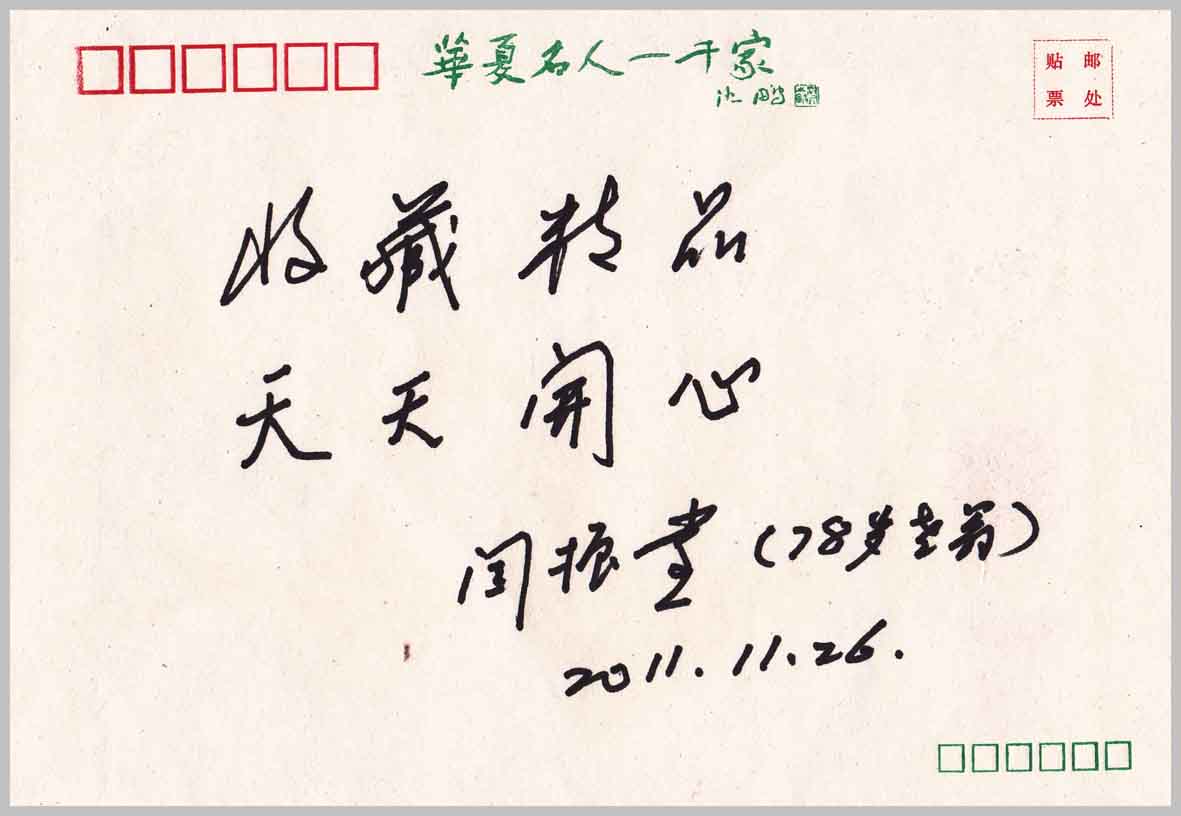 華夏名人一千家
沈鹏
贴邮
票处
收藏精品
天天开心
闫振堂（78岁老翁）
2011.11.26.